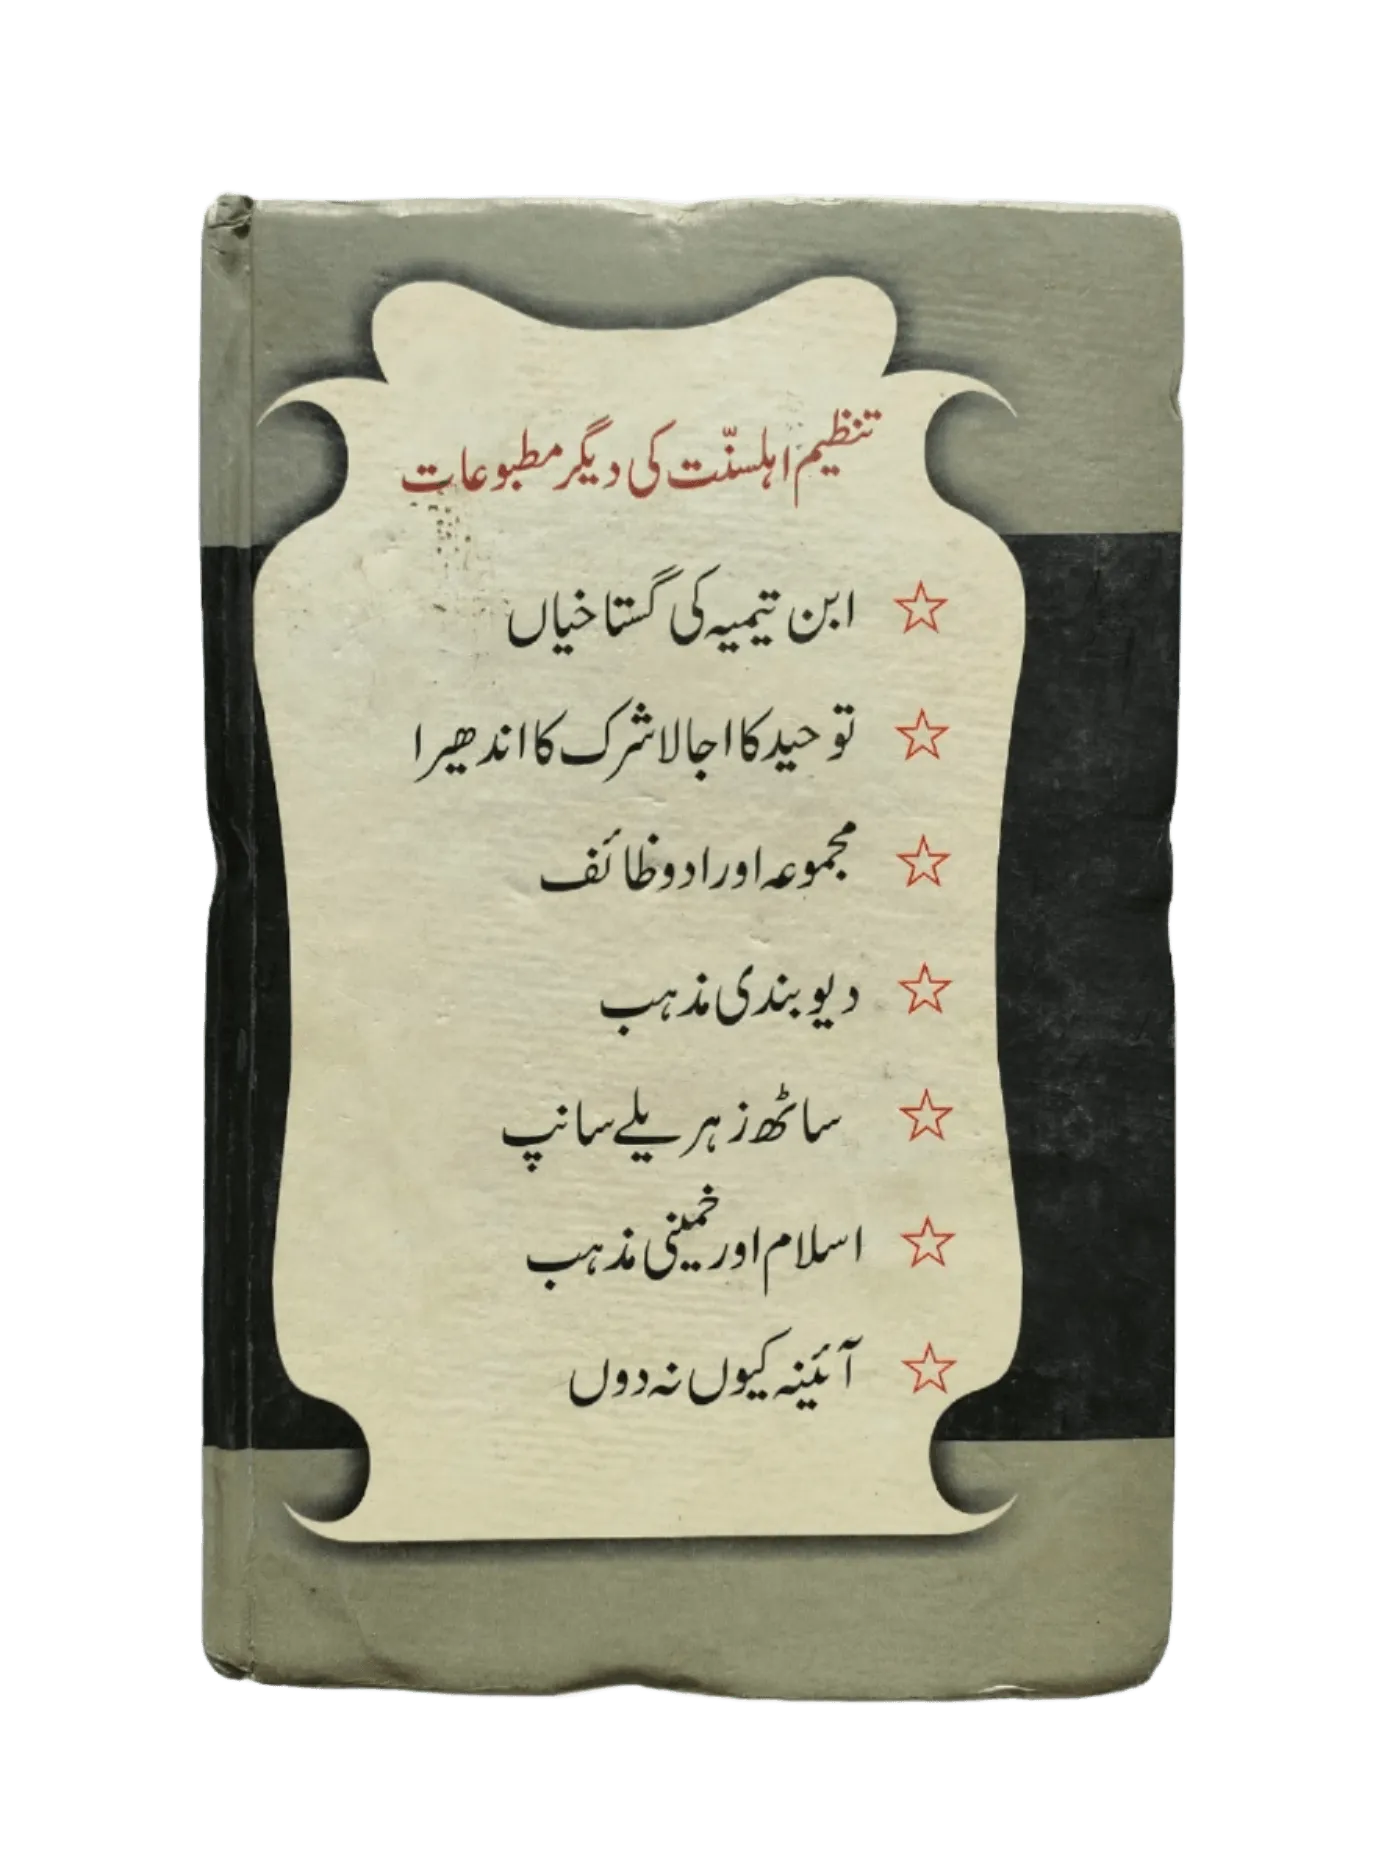 تنظیم اہلسنّت کی دیگر مطبوعات
ابن تیمیہ کی گستاخیاں
توحید کا اجالا شرک کا اندھیرا
مجموعہ اوراد و ظائف
دیوبندی مذہب
ساٹھ زہریلے سانپ
اسلام اور خمینی مذہب
آئینہ کیوں نہ دوں